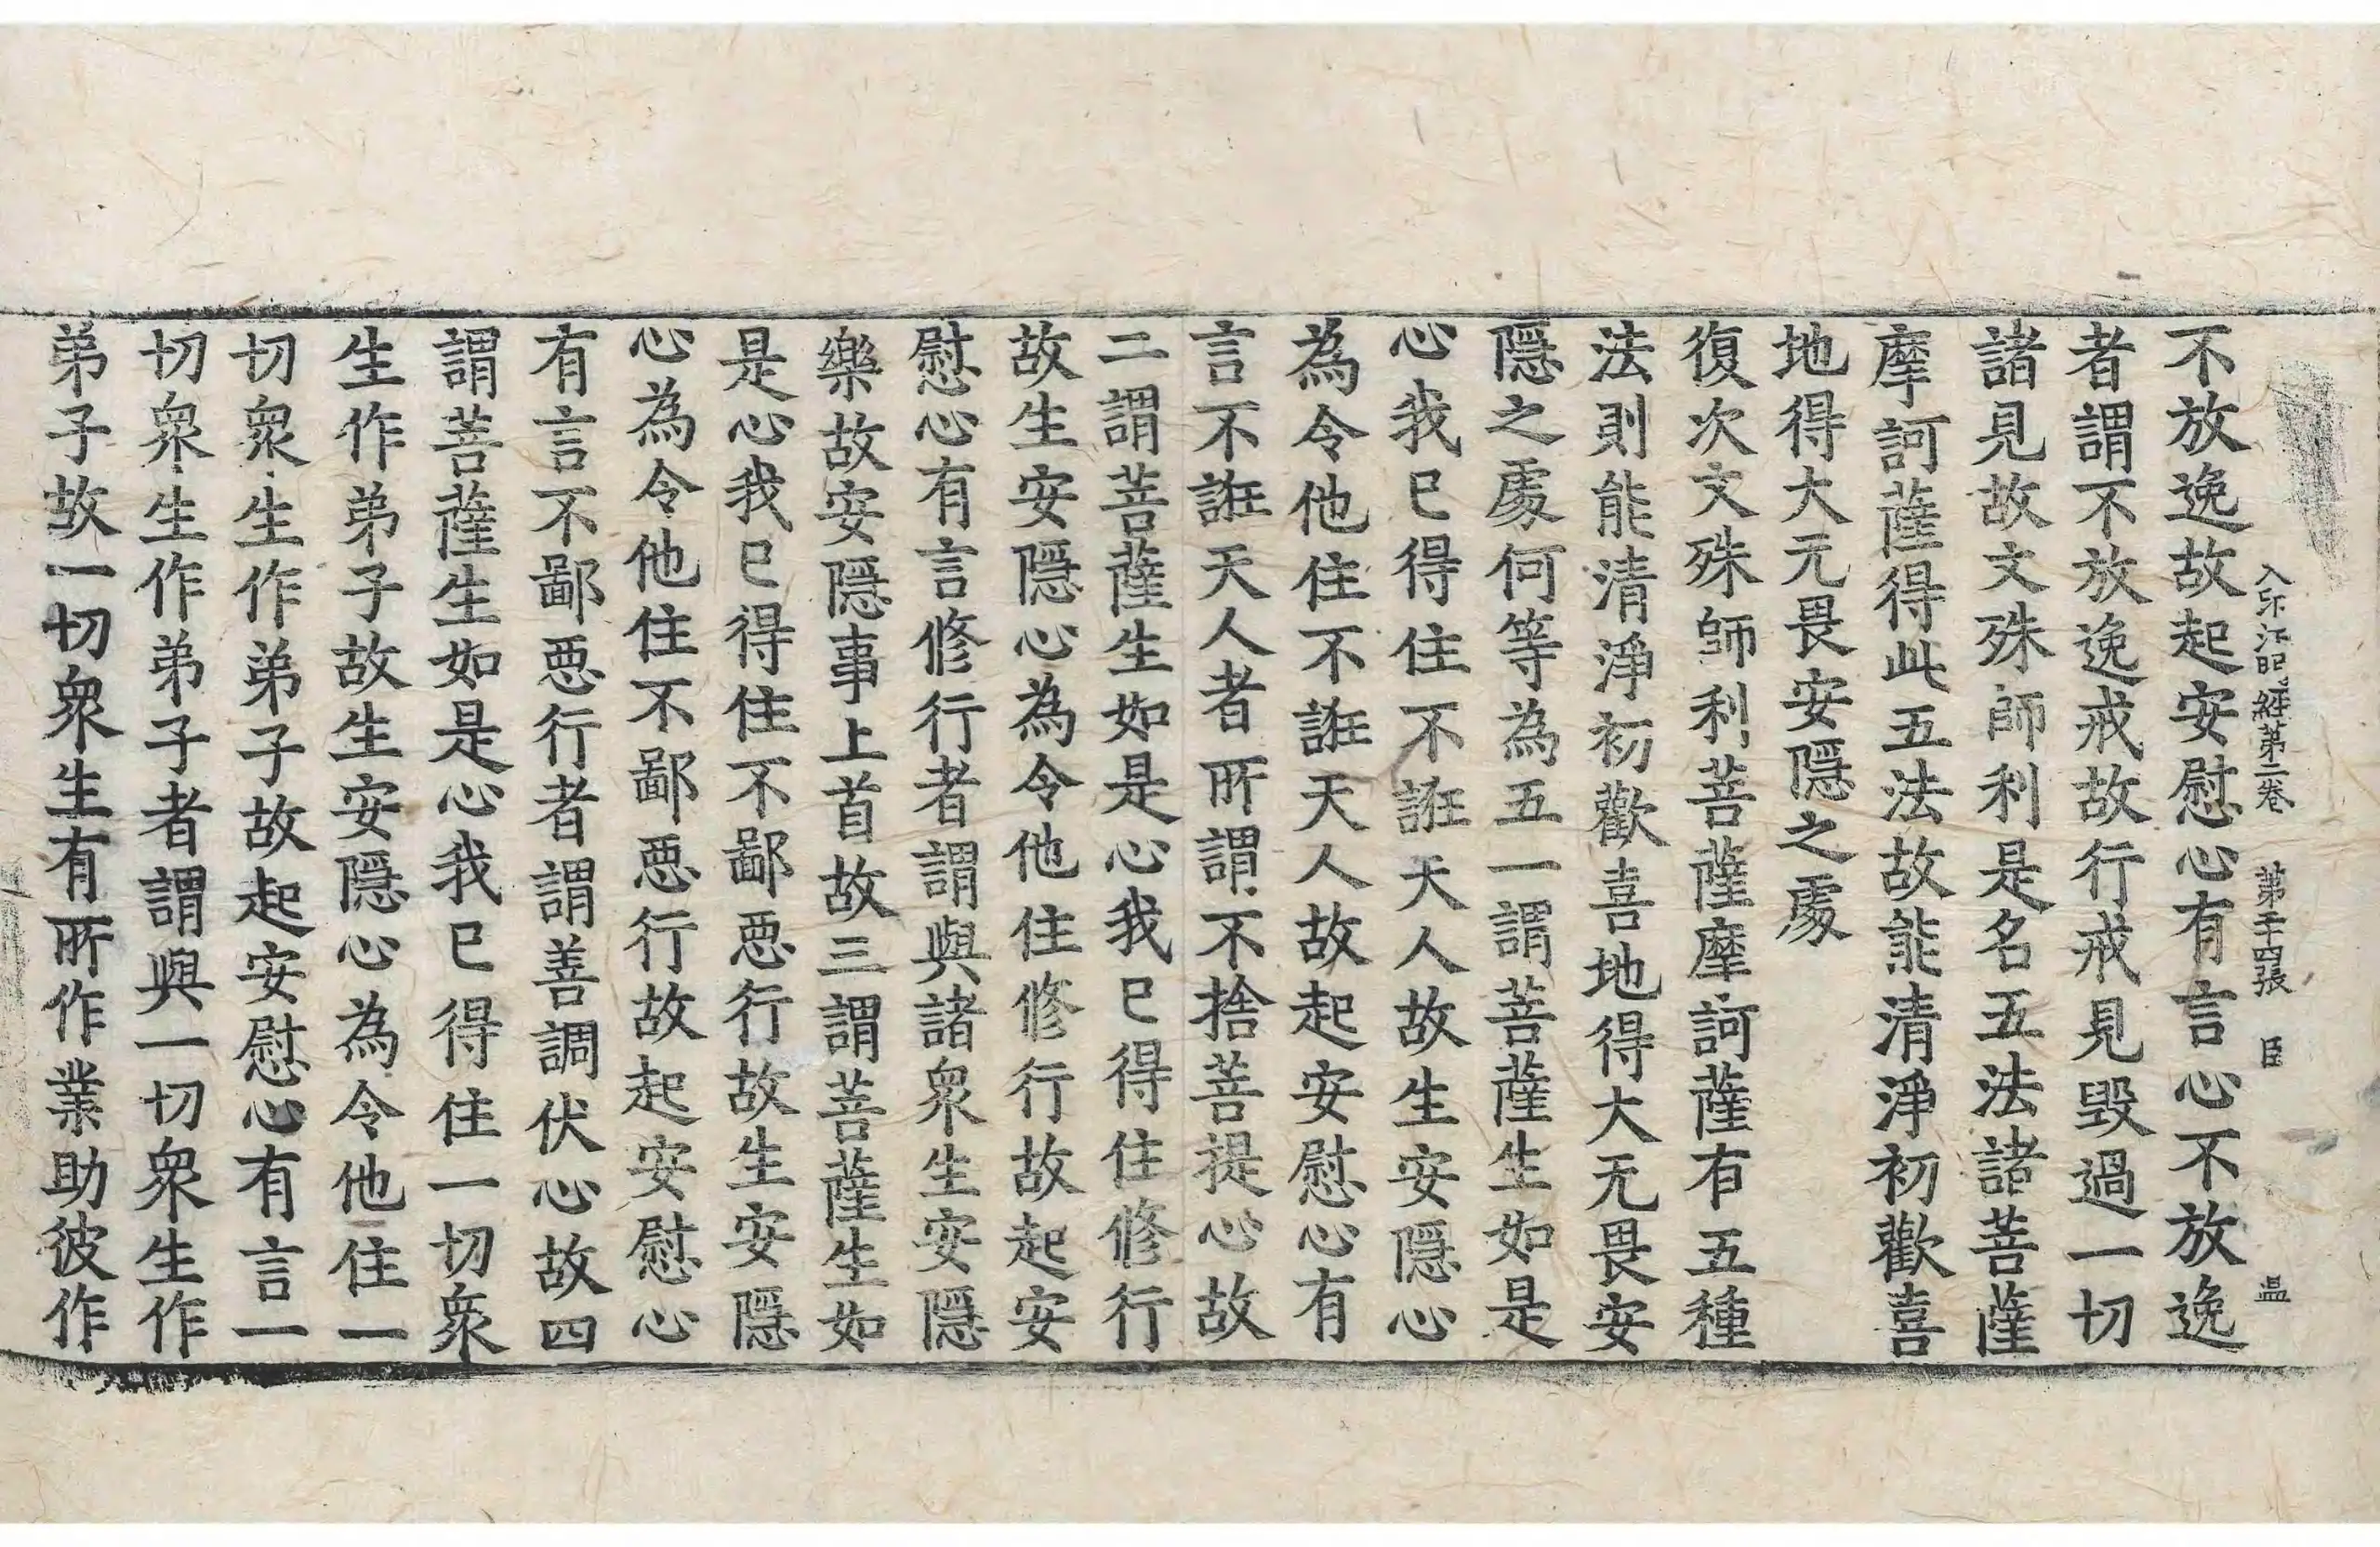 入印法門經第二卷 第二十四張 臣 昷
不放逸故起安慰心有言心不放逸
者謂不放逸戒故行戒見毀過一切
諸見故文殊師利是名五法諸菩薩
摩訶薩得此五法故能清淨初歡喜
地得大无畏安隱之處
復次文殊師利菩薩摩訶薩有五種
法則能清淨初歡喜地得大无畏安
隱之處何等為五一謂菩薩生如是
心我已得住不誑天人故生安隱心
為令他住不誑天人故起安慰心有
言不誑天人者所謂不捨菩提心故
二謂菩薩生如是心我已得住修行
故生安隱心為令他住修行故起安
慰心有言修行者謂與諸衆生安隱
樂故安隱事上首故三謂菩薩生如
是心我已得住不鄙惡行故生安隱
心為令他住不鄙惡行故起安慰心
有言不鄙惡行者謂善調伏心故四
謂菩薩生如是心我已得住一切衆
生作弟子故生安隱心為令他住一
切衆生作弟子故起安慰心有言一
切衆生作弟子者謂與一切衆生作
弟子故一切衆生有所作業助彼作